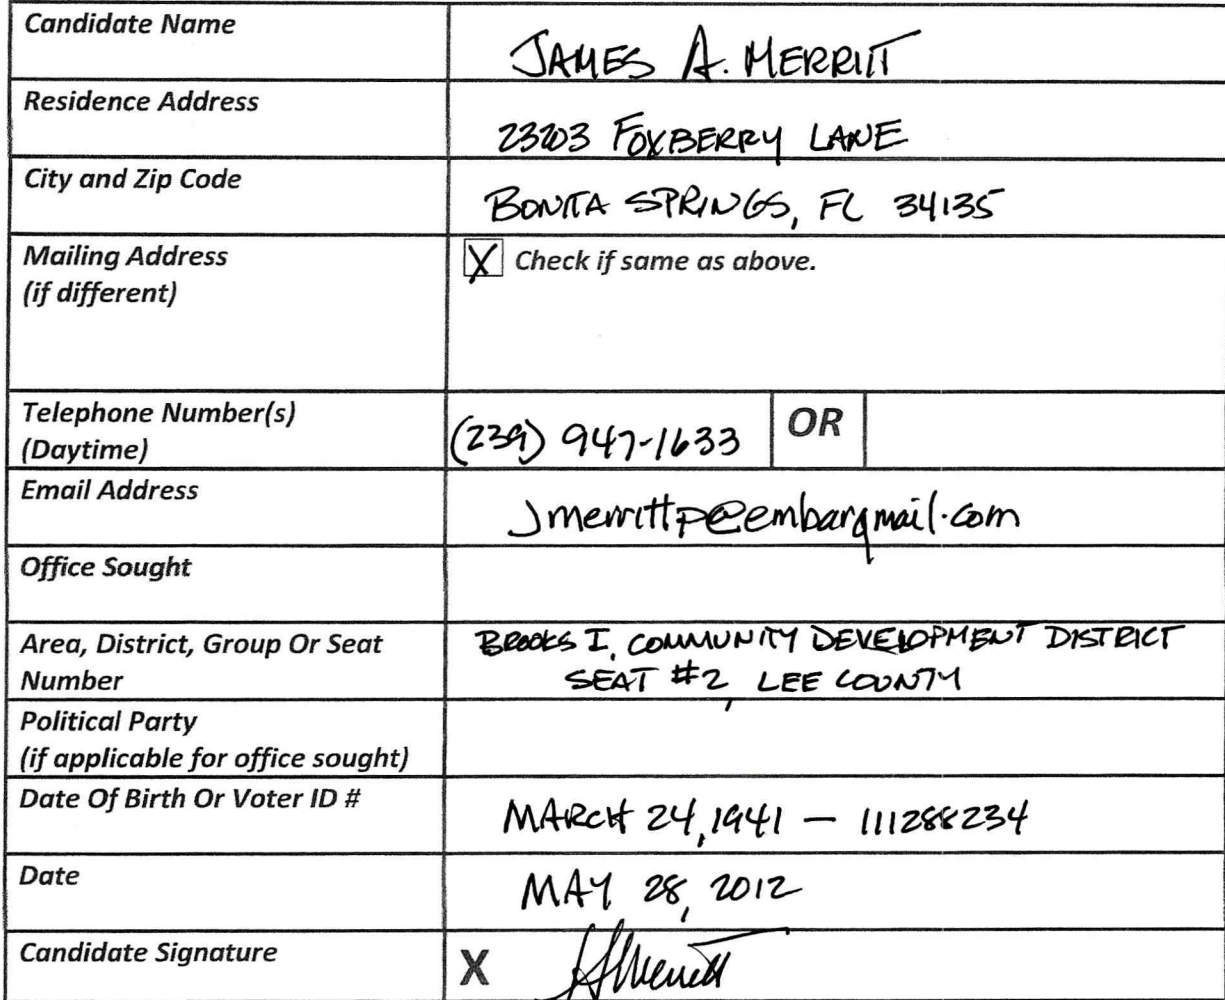 Candidate Name JAMES A. MERRITT
Residence Address 23203 FOXBERRY LANE
City and Zip Code BONITA SPRINGS, FL 34135
Mailing Address
(if different)
X Check if same as above.
Telephone Number(s)
(Daytime)
(239) 947-1633 OR
Email Address Jmerrittpe@embarqmail.com
Office Sought
Area, District, Group Or Seat
Number
BROOKS I, COMMUNITY DEVELOPMENT DISTRICT
SEAT #2, LEE COUNTY
Political Party
(if applicable for office sought)
Date Of Birth Or Voter ID # MARCH 24, 1941 — 111288234
Date MAY 28, 2012
Candidate Signature X JAMerritt